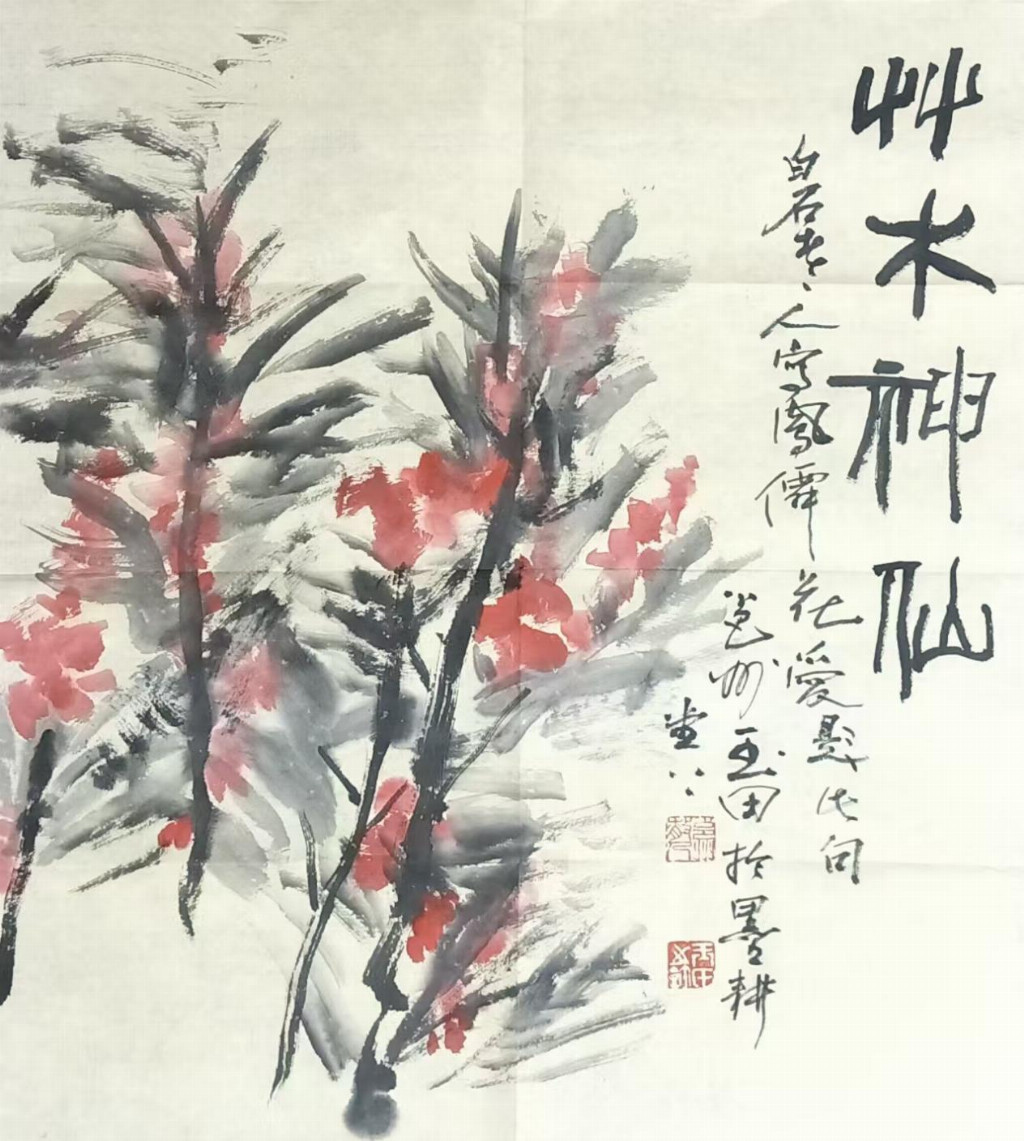 艸木神仙
白石老人寫鳳僊花愛題此句
邕州玉田於墨耕
堂